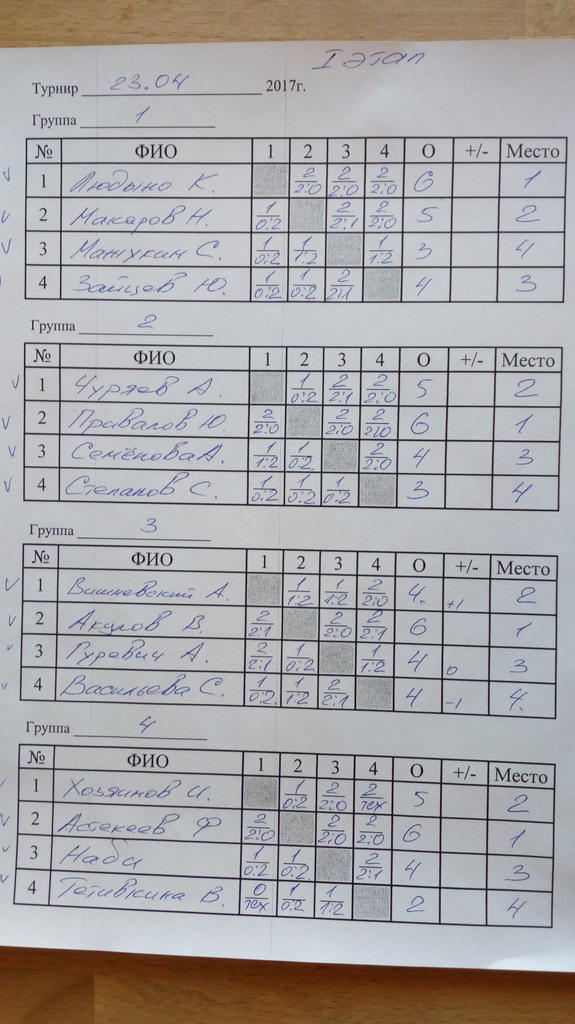 I этап
Турнир 23.04 2017г.
Группа 1
№ ФИО 1 2 3 4 О +/- Место
1 Людыно К. 2/2:0 2/2:0 2/2:0 6 1
2 Макаров Н. 1/0:2 2/2:1 2/2:0 5 2
3 Манжукин С. 1/0:2 1/1:2 1/1:2 3 4
4 Зайцев Ю. 1/0:2 1/0:2 2/2:1 4 3
Группа 2
№ ФИО 1 2 3 4 О +/- Место
1 Чуряев А. 1/0:2 2/2:1 2/2:0 5 2
2 Привалов Ю. 2/2:0 2/2:0 2/2:0 6 1
3 Семёнова А. 1/1:2 1/0:2 2/2:0 4 3
4 Степанов С. 1/0:2 1/0:2 1/0:2 3 4
Группа 3
№ ФИО 1 2 3 4 О +/- Место
1 Вишневский А. 1/1:2 1/1:2 2/2:0 4. +1 2
2 Акулов В. 2/2:1 2/2:0 2/2:1 6 1
3 Гуревич А. 2/2:1 1/0:2 1/1:2 4 0 3
4 Васильева С. 1/0:2 1/1:2 2/2:1 4 -1 4.
Группа 4
№ ФИО 1 2 3 4 О +/- Место
1 Хозяинов И. 1/0:2 2/2:0 2/тех 5 2
2 Астекеев Ф 2/2:0 2/2:0 2/2:0 6 1
3 Наби 1/0:2 1/0:2 2/2:1 4 3
4 Тетивкина В. 0/тех 1/0:2 1/1:2 2 4